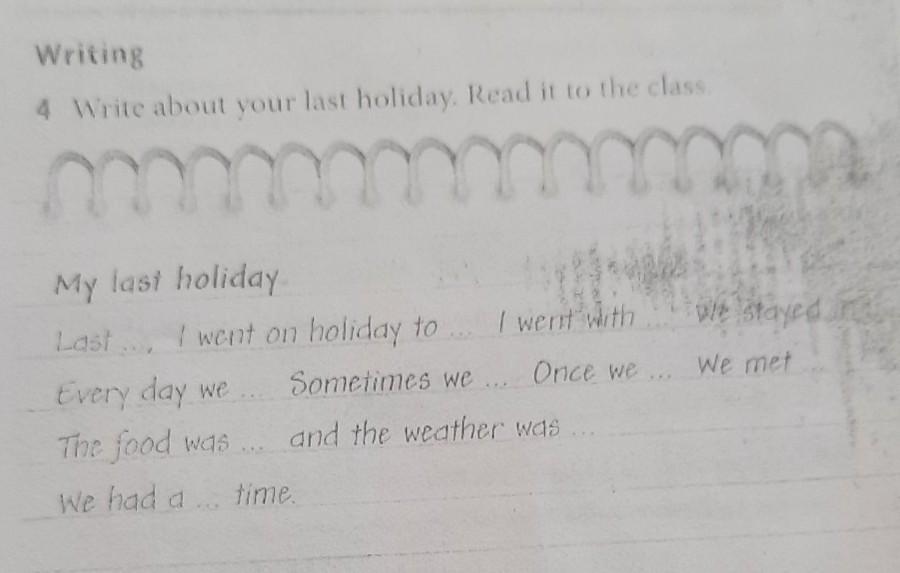 Writing
4 Write about your last holiday. Read it to the class.
My last holiday
Last ..., I went on holiday to ... I went with ... We stayed in
Every day we ... Sometimes we ... Once we ... We met ...
The food was ... and the weather was ...
We had a ... time.